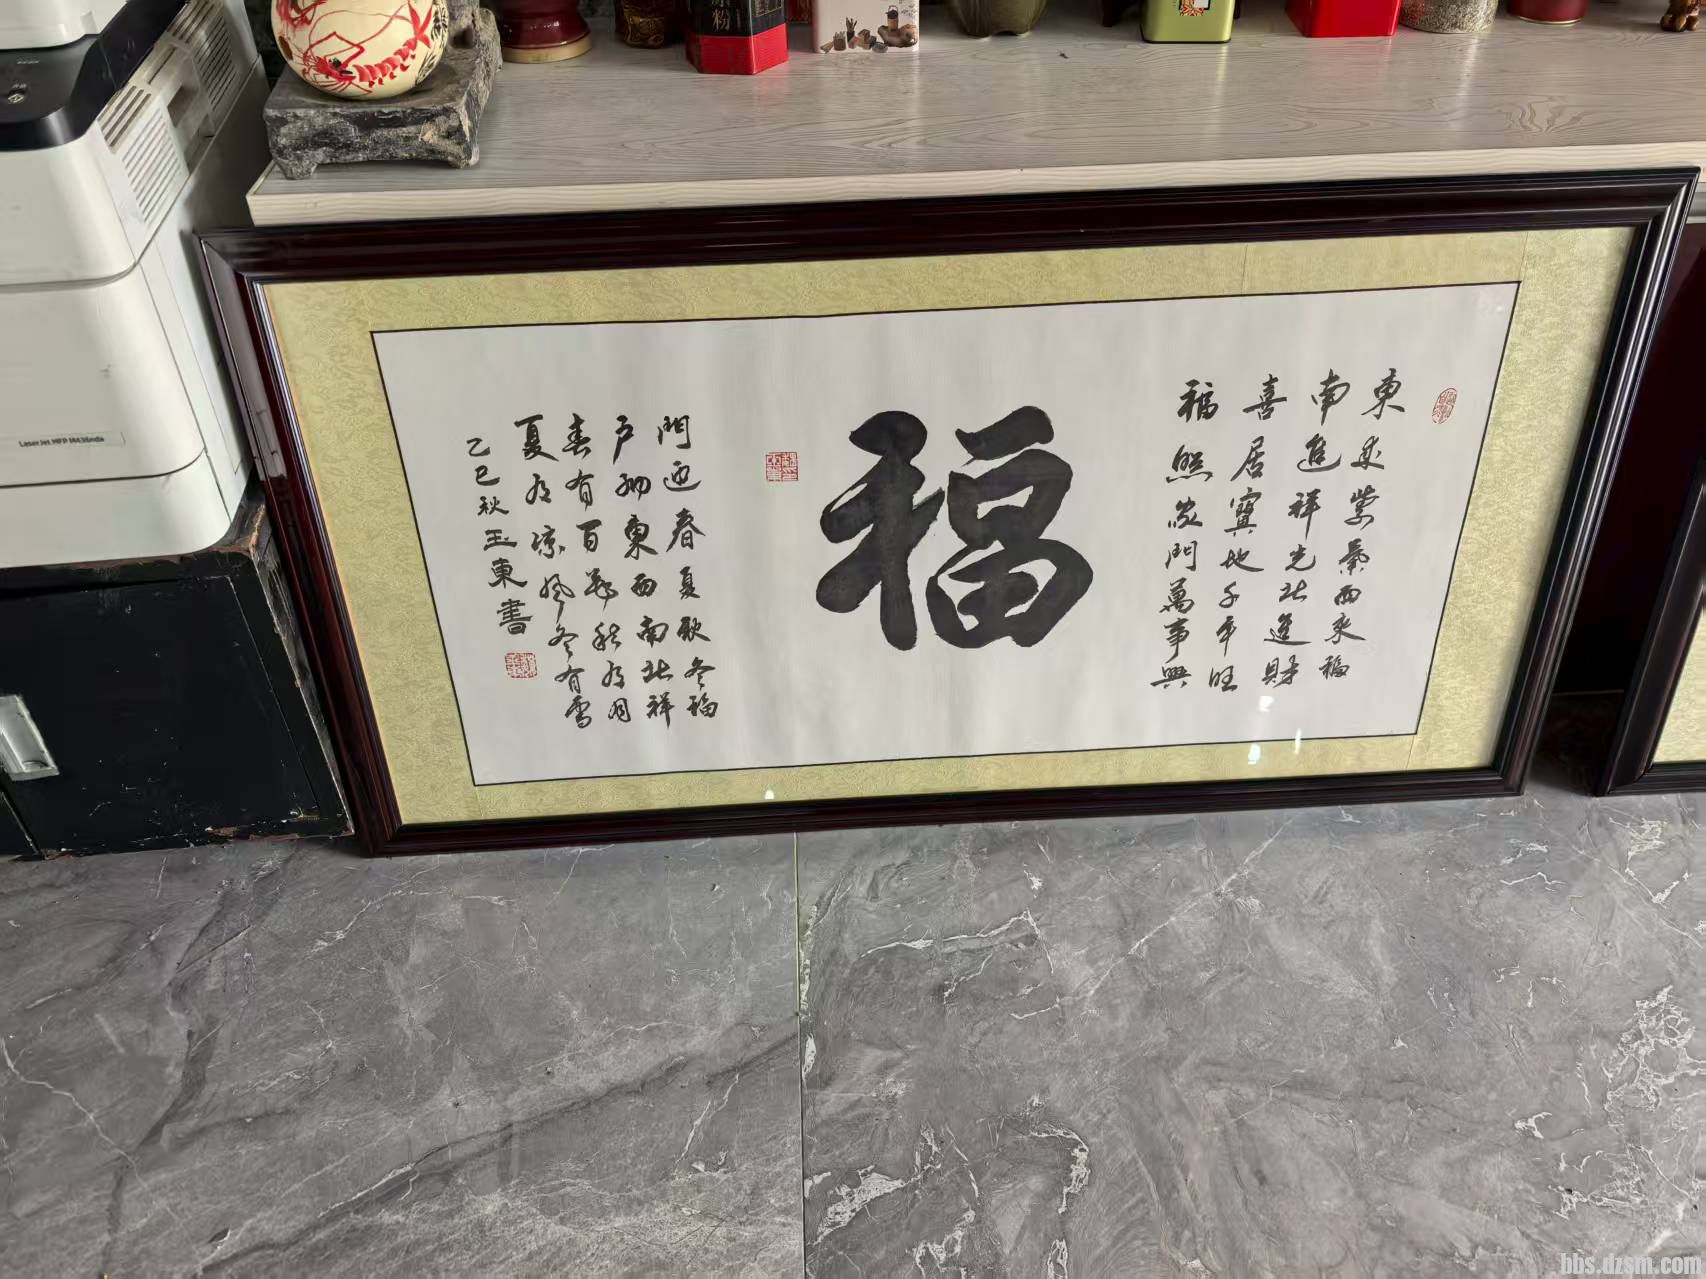 東来紫氣西来福
南進祥光北進財
喜居寶地千年旺
福照家門萬事興
福
門迎春夏秋冬福
戶納東西南北祥
春有百花秋有月
夏有涼風冬有雪
乙巳秋玉東書
LaserJet MFP M436nda
粉
bbs.dzsm.com